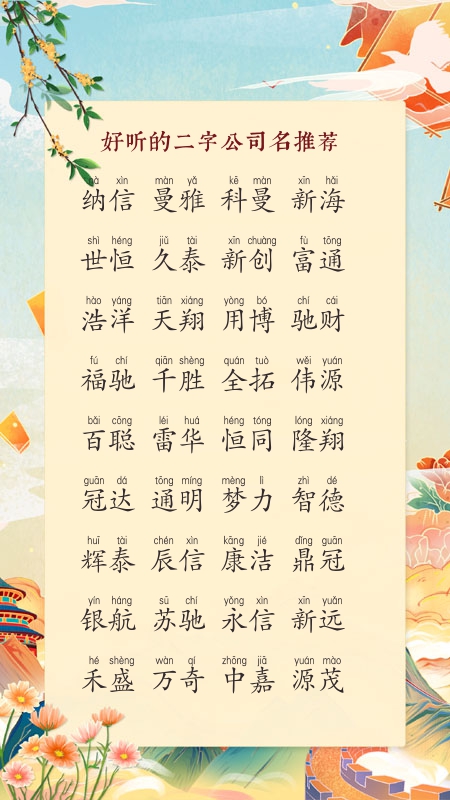 好听的二字公司名推荐
nà xìn màn yǎ kē màn xīn hǎi
纳信 曼雅 科曼 新海
shì héng jiǔ tài xīn chuàng fù tōng
世恒 久泰 新创 富通
hào yáng tiān xiáng yòng bó chí cái
浩洋 天翔 用博 驰财
fú chí qiān shèng quán tuò wěi yuán
福驰 千胜 全拓 伟源
bǎi cōng léi huá héng tóng lóng xiáng
百聪 雷华 恒同 隆翔
guān dá tōng míng mèng lì zhì dé
冠达 通明 梦力 智德
huī tài chén xìn kāng jié dǐng guān
辉泰 辰信 康洁 鼎冠
yín háng sū chí yǒng xìn xīn yuǎn
银航 苏驰 永信 新远
hé shèng wàn qí zhōng jiā yuán mào
禾盛 万奇 中嘉 源茂